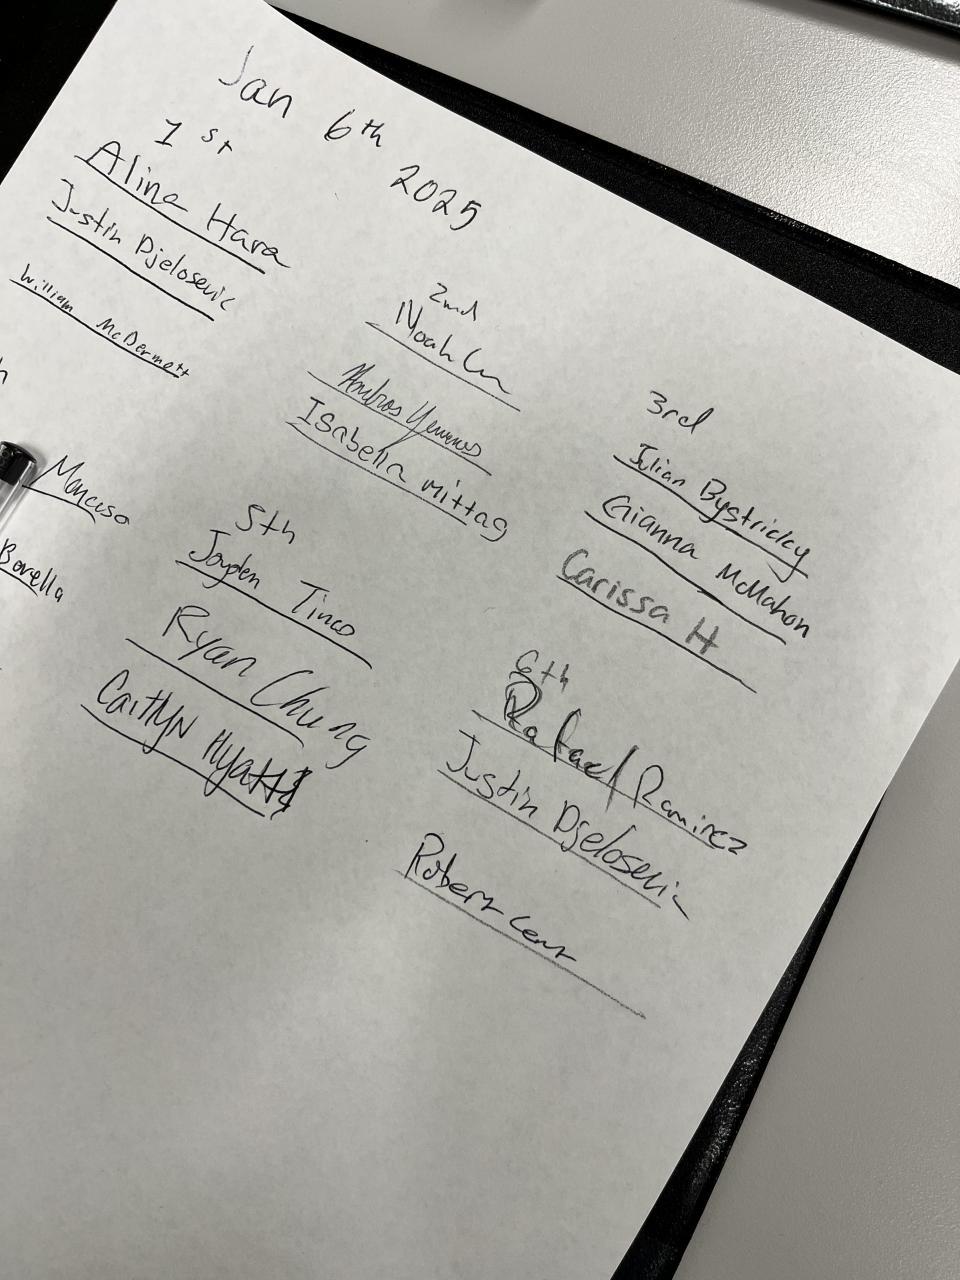 Jan 6th 2025
1st
Aline Hara
Justin Djelosevic
William McDermott
2nd
Noah
Isabella Mittag
3rd
Julian Bystricky
Gianna McMahon
Carissa H
h
Mancuso
Borella
5th
Jayden Tinco
Ryan Chung
Caitlyn Hyatt
6th
Rafael Ramirez
Justin Djelosevic
Robert